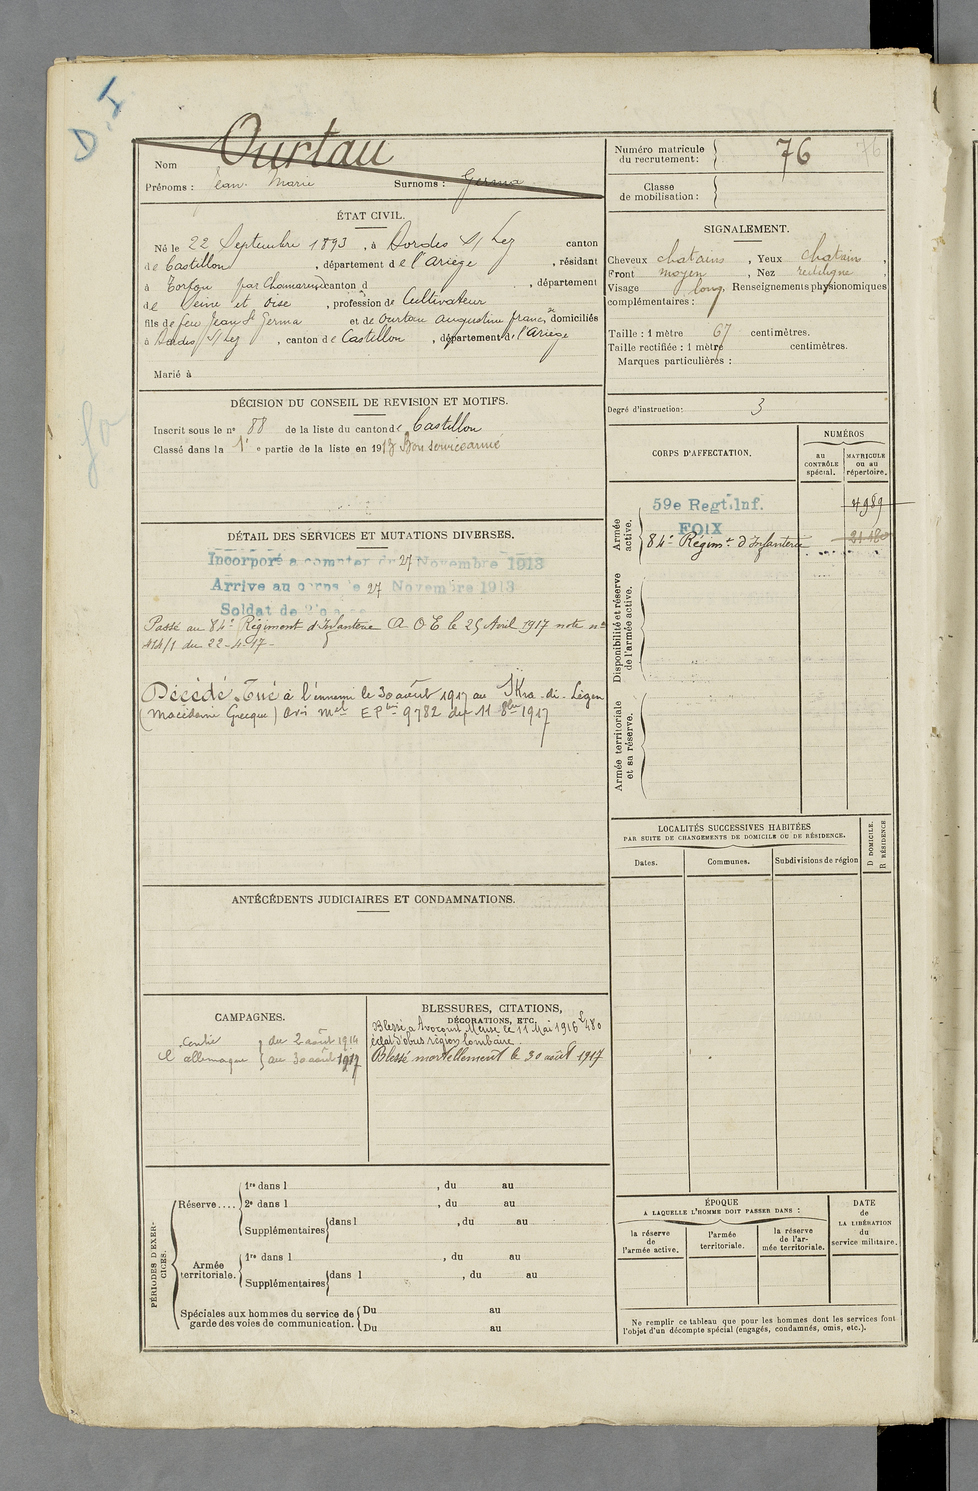 D.I
Nom Ourtau
Prénoms : Jean Marie Surnoms : Germa
ÉTAT CIVIL.
Né le 22 Septembre 1893, à Bordes S/ Lez canton
de Castillon, département de l'Ariège, résidant
à Torfou par Chamarande canton d , département
de Seine et Oise, profession de Cultivateur
fils de feu Jean St Germa et de Ourtau Augustine Franç.se domiciliés
à Bordes S/ Lez, canton de Castillon, département de l'Ariège
Marié à
DÉCISION DU CONSEIL DE REVISION ET MOTIFS.
Inscrit sous le n° 88 de la liste du canton de Castillon
Classé dans la 1e partie de la liste en 1913 Bon service armé
DÉTAIL DES SERVICES ET MUTATIONS DIVERSES.
Incorporé à compter du 27 Novembre 1913
Arrive au corps le 27 Novembre 1913
Soldat de 2e classe
Passé au 84e Régiment d'Infanterie A O E le 25 Avril 1917 note n°
414/1 du 22-4-17-
Décédé. Tué à l'ennemi le 30 août 1917 au SKra-di-Legen
(Macédoine Grecque) avis mel EP 9782 du 11 8bre 1917
ANTÉCÉDENTS JUDICIAIRES ET CONDAMNATIONS.
CAMPAGNES.
Contre du 2 août 1914
l'allemagne au 30 août 1917
BLESSURES, CITATIONS,
DÉCORATIONS, ETC.
Blessé à Avocourt Meuse le 11 Mai 1916
éclat d'obus région lombaire.
Blessé mortellement le 30 août 1917
PÉRIODES D'EXERCICES.
Réserve.... 1re dans l , du au
2e dans l , du au
Supplémentaires dans l , du au
Armée territoriale. 1re dans l , du au
Supplémentaires dans l , du au
Spéciales aux hommes du service de garde des voies de communication. Du au
Du au
Numéro matricule du recrutement : 76 76
Classe de mobilisation :
SIGNALEMENT.
Cheveux chatains, Yeux chatain,
Front moyen, Nez rectiligne,
Visage long, Renseignements physionomiques
complémentaires :
Taille : 1 mètre 67 centimètres.
Taille rectifiée : 1 mètre centimètres.
Marques particulières :
Degré d'instruction : 3
CORPS D'AFFECTATION.
NUMÉROS
au CONTRÔLE spécial.
MATRICULE ou au répertoire.
Armée active.
59e Regt. Inf. 4989
FOIX
84e Régimt d'Infanterie 21480
Disponibilité et réserve de l'armée active.
Armée territoriale et sa réserve.
LOCALITÉS SUCCESSIVES HABITÉES
PAR SUITE DE CHANGEMENTS DE DOMICILE OU DE RÉSIDENCE.
Dates. Communes. Subdivisions de région
D DOMICILE.
R RÉSIDENCE
ÉPOQUE
A LAQUELLE L'HOMME DOIT PASSER DANS :
la réserve de l'armée active.
l'armée territoriale.
la réserve de l'armée territoriale.
DATE de LA LIBÉRATION du service militaire.
Ne remplir ce tableau que pour les hommes dont les services font
l'objet d'un décompte spécial (engagés, condamnés, omis, etc.).